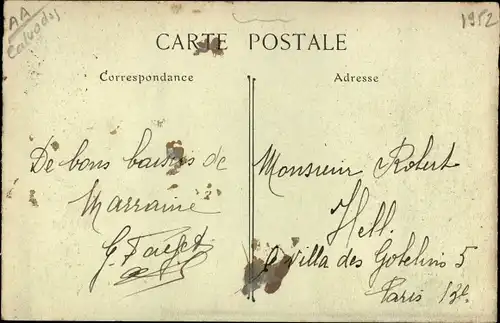 AA
Calvados
1952
CARTE POSTALE
Correspondance
Adresse
De bons baisers de
Marraine
G.
Monsieur Robert
Hell.
villa des Gobelins 5
Paris 13e